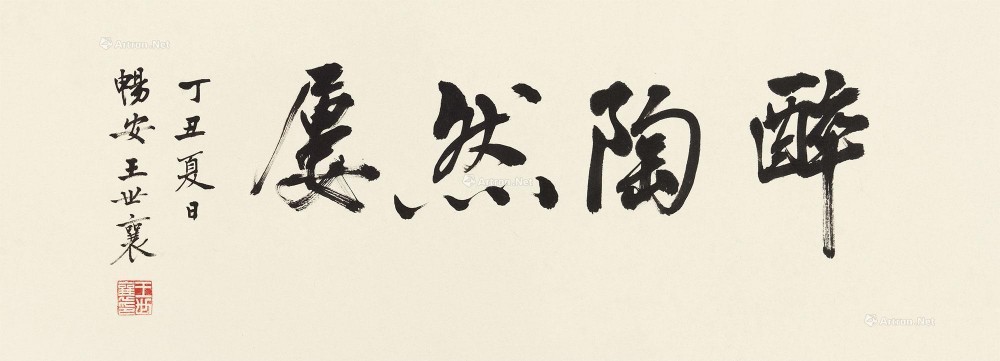 醉陶然廔
丁丑夏日
暢安王世襄
王世襄印
Artron.Net
Artron.Net
Artron.Net